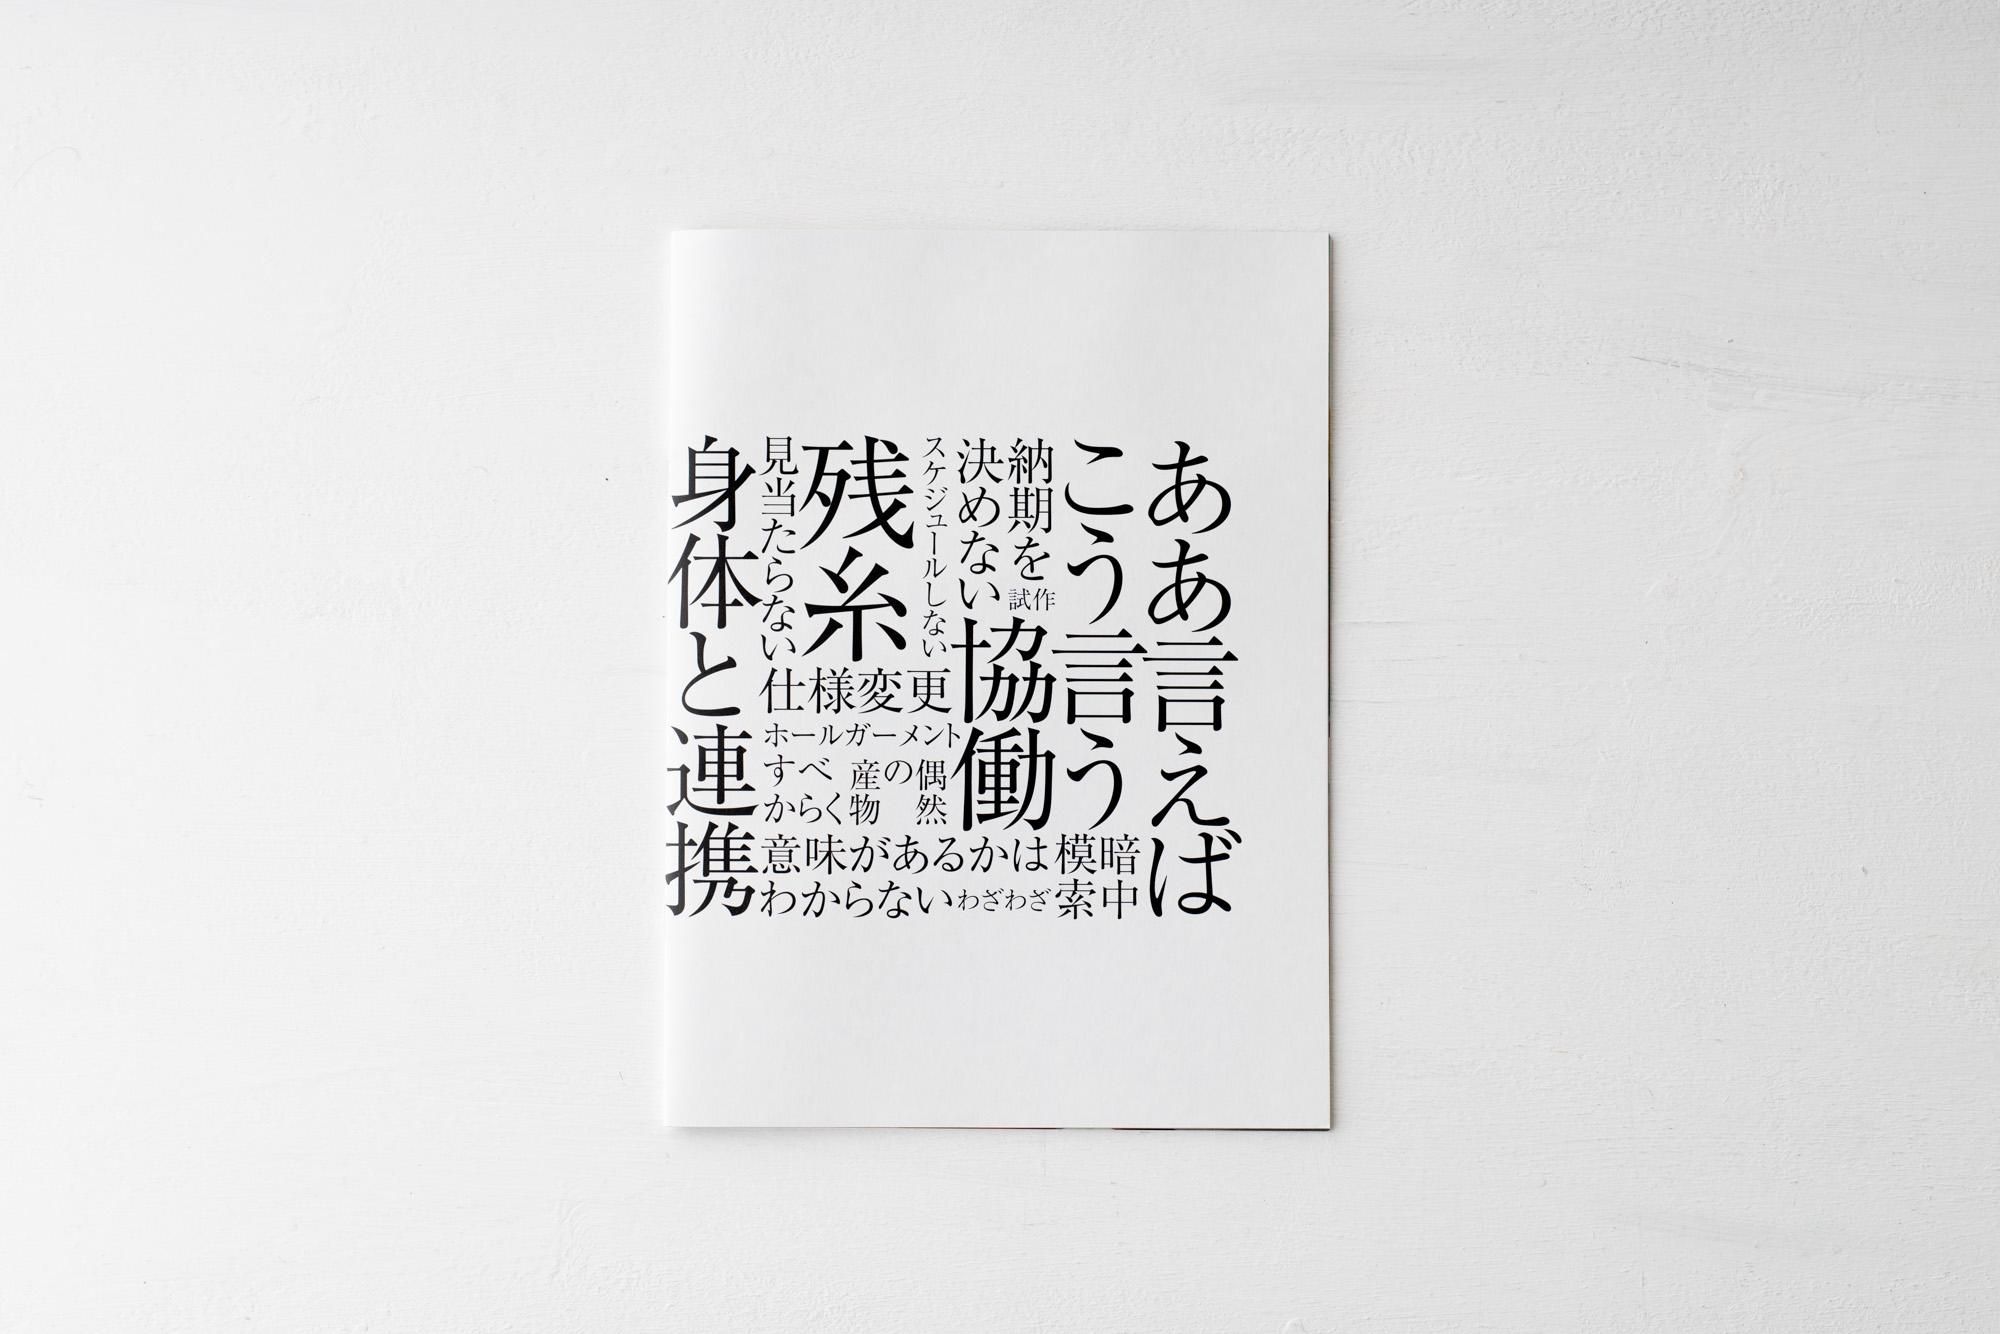 ああ言えば
こう言う
暗中
模索
納期を
決めない
試作
協働
スケジュールしない
残糸
見当たらない
仕様変更
ホールガーメント
偶然
の
産物
すべ
からく
意味があるかは
わからない
わざわざ
身体と連携